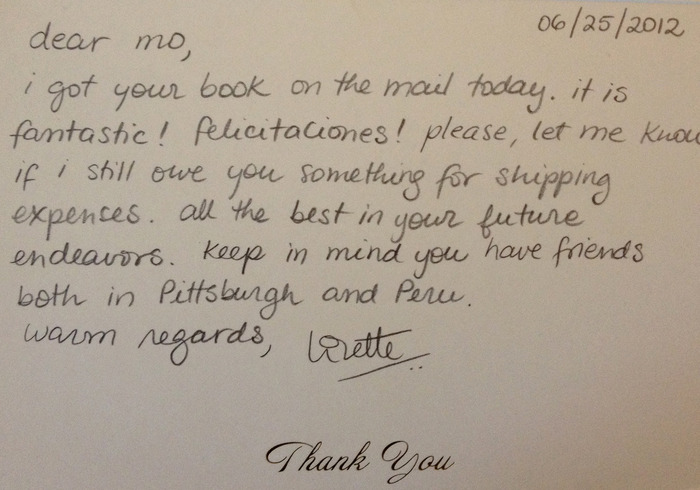 06/25/2012
dear mo,
i got your book on the mail today. it is
fantastic! felicitaciones! please, let me know
if i still owe you something for shipping
expences. all the best in your future
endeavors. keep in mind you have friends
both in Pittsburgh and Peru.
warm regards, Lizette
Thank You